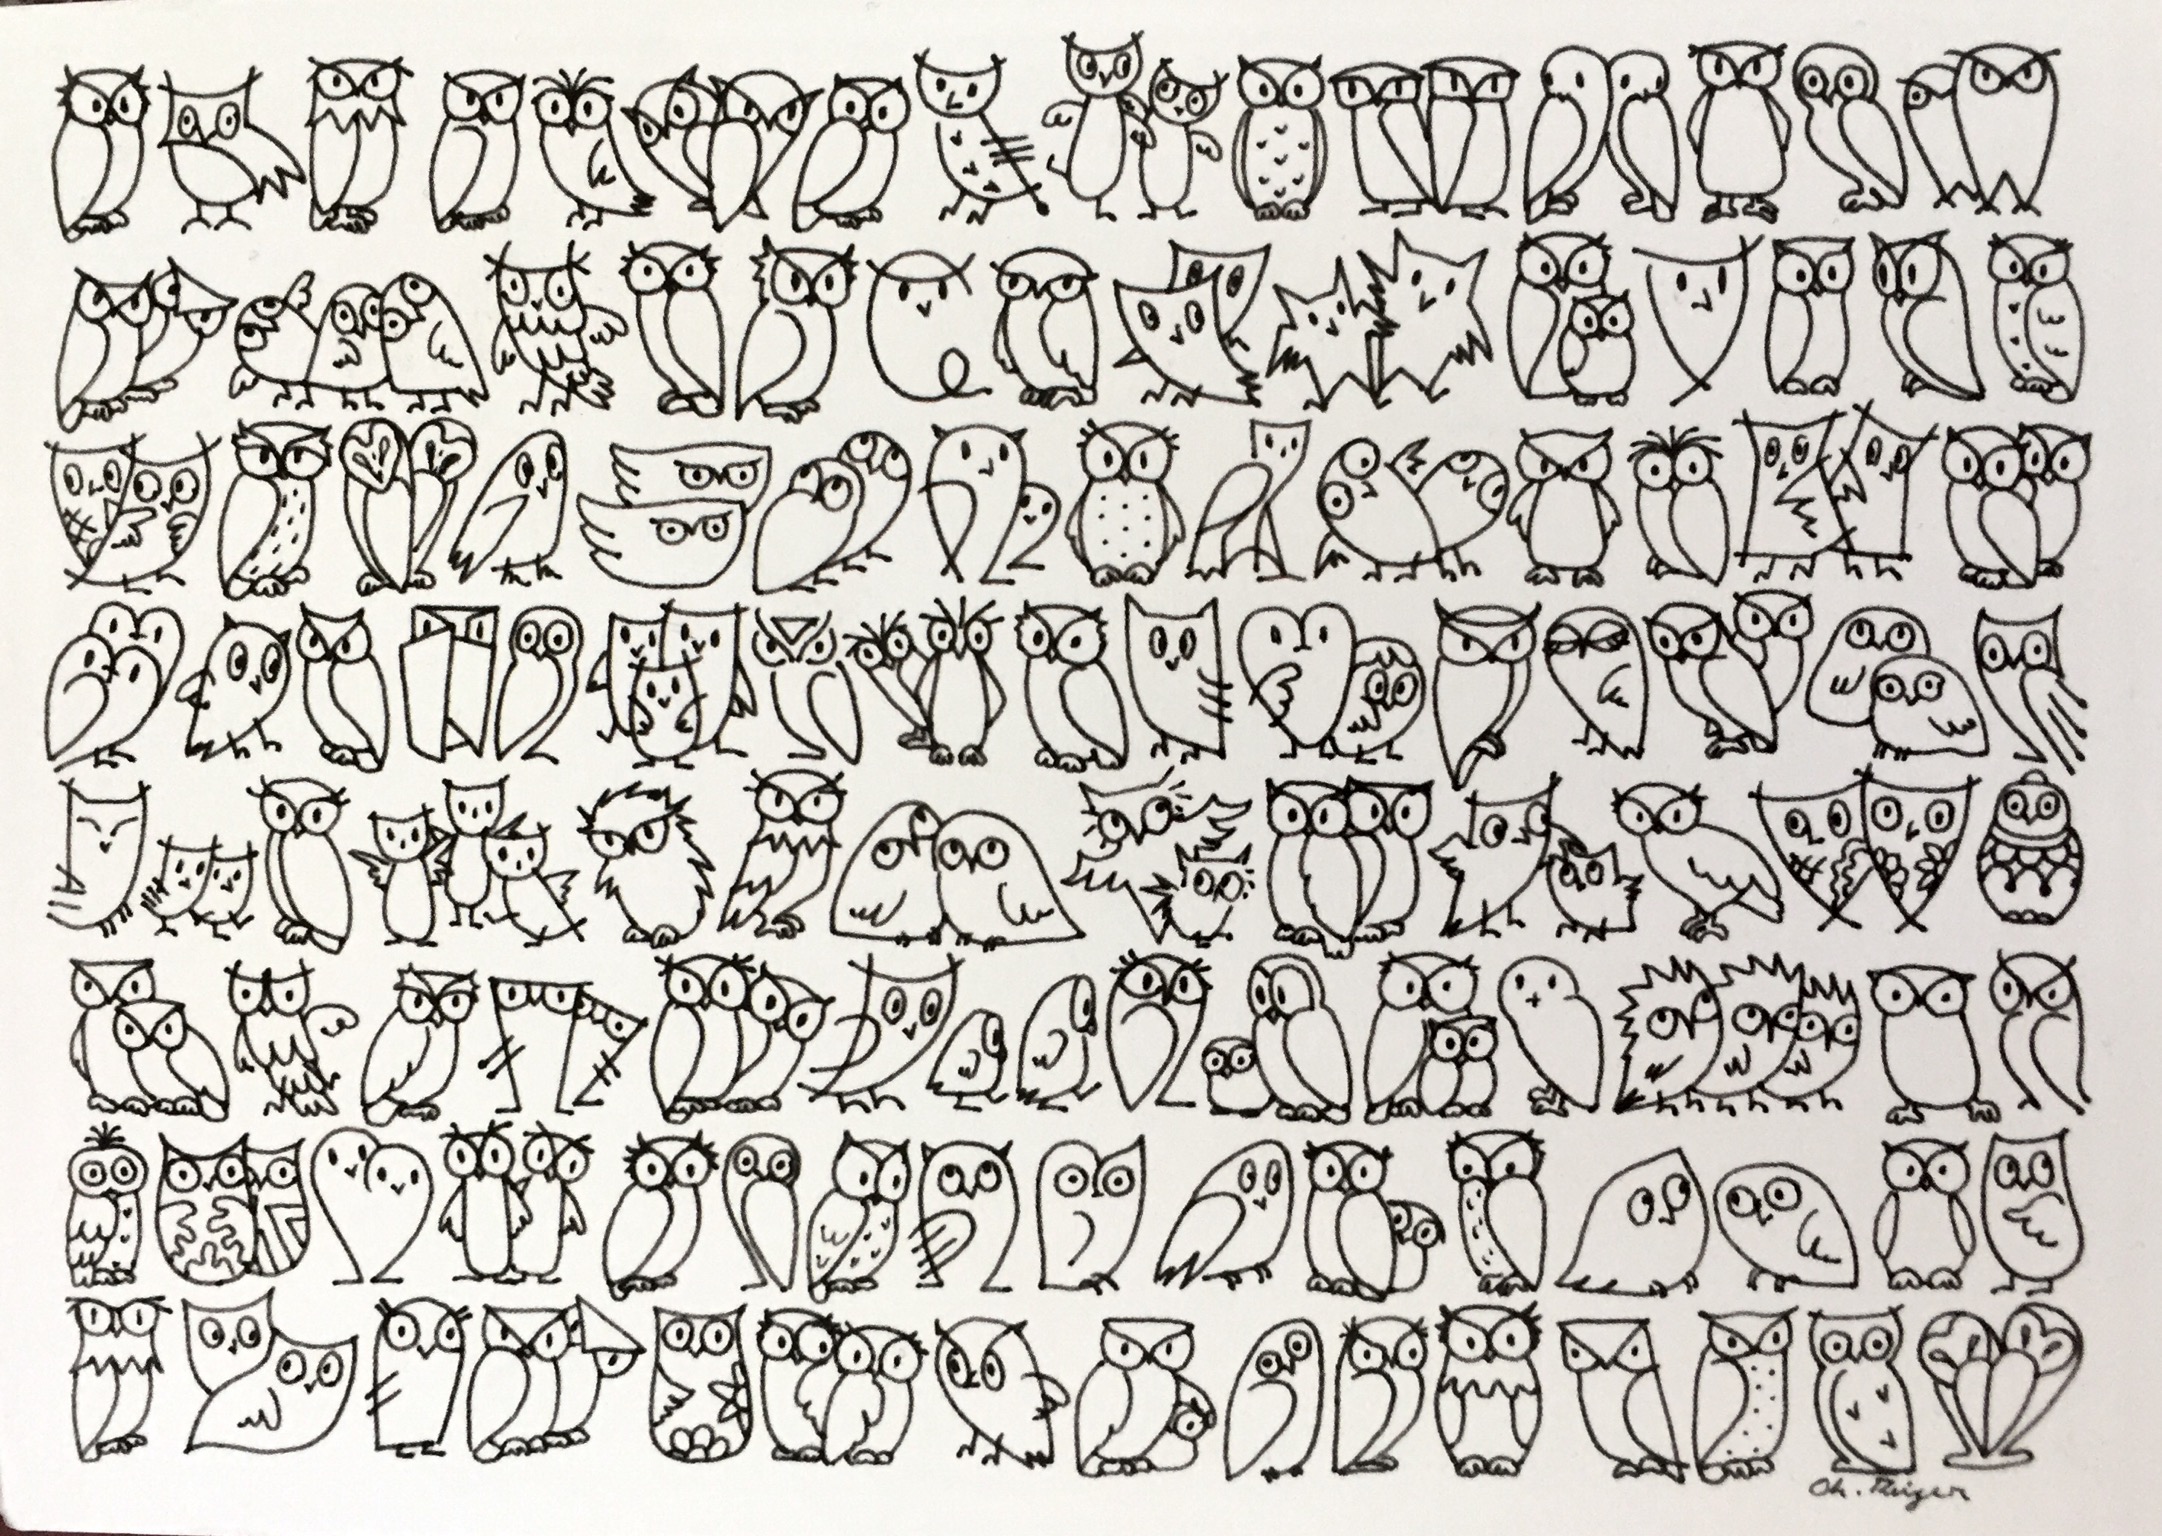 Ch. Rieger